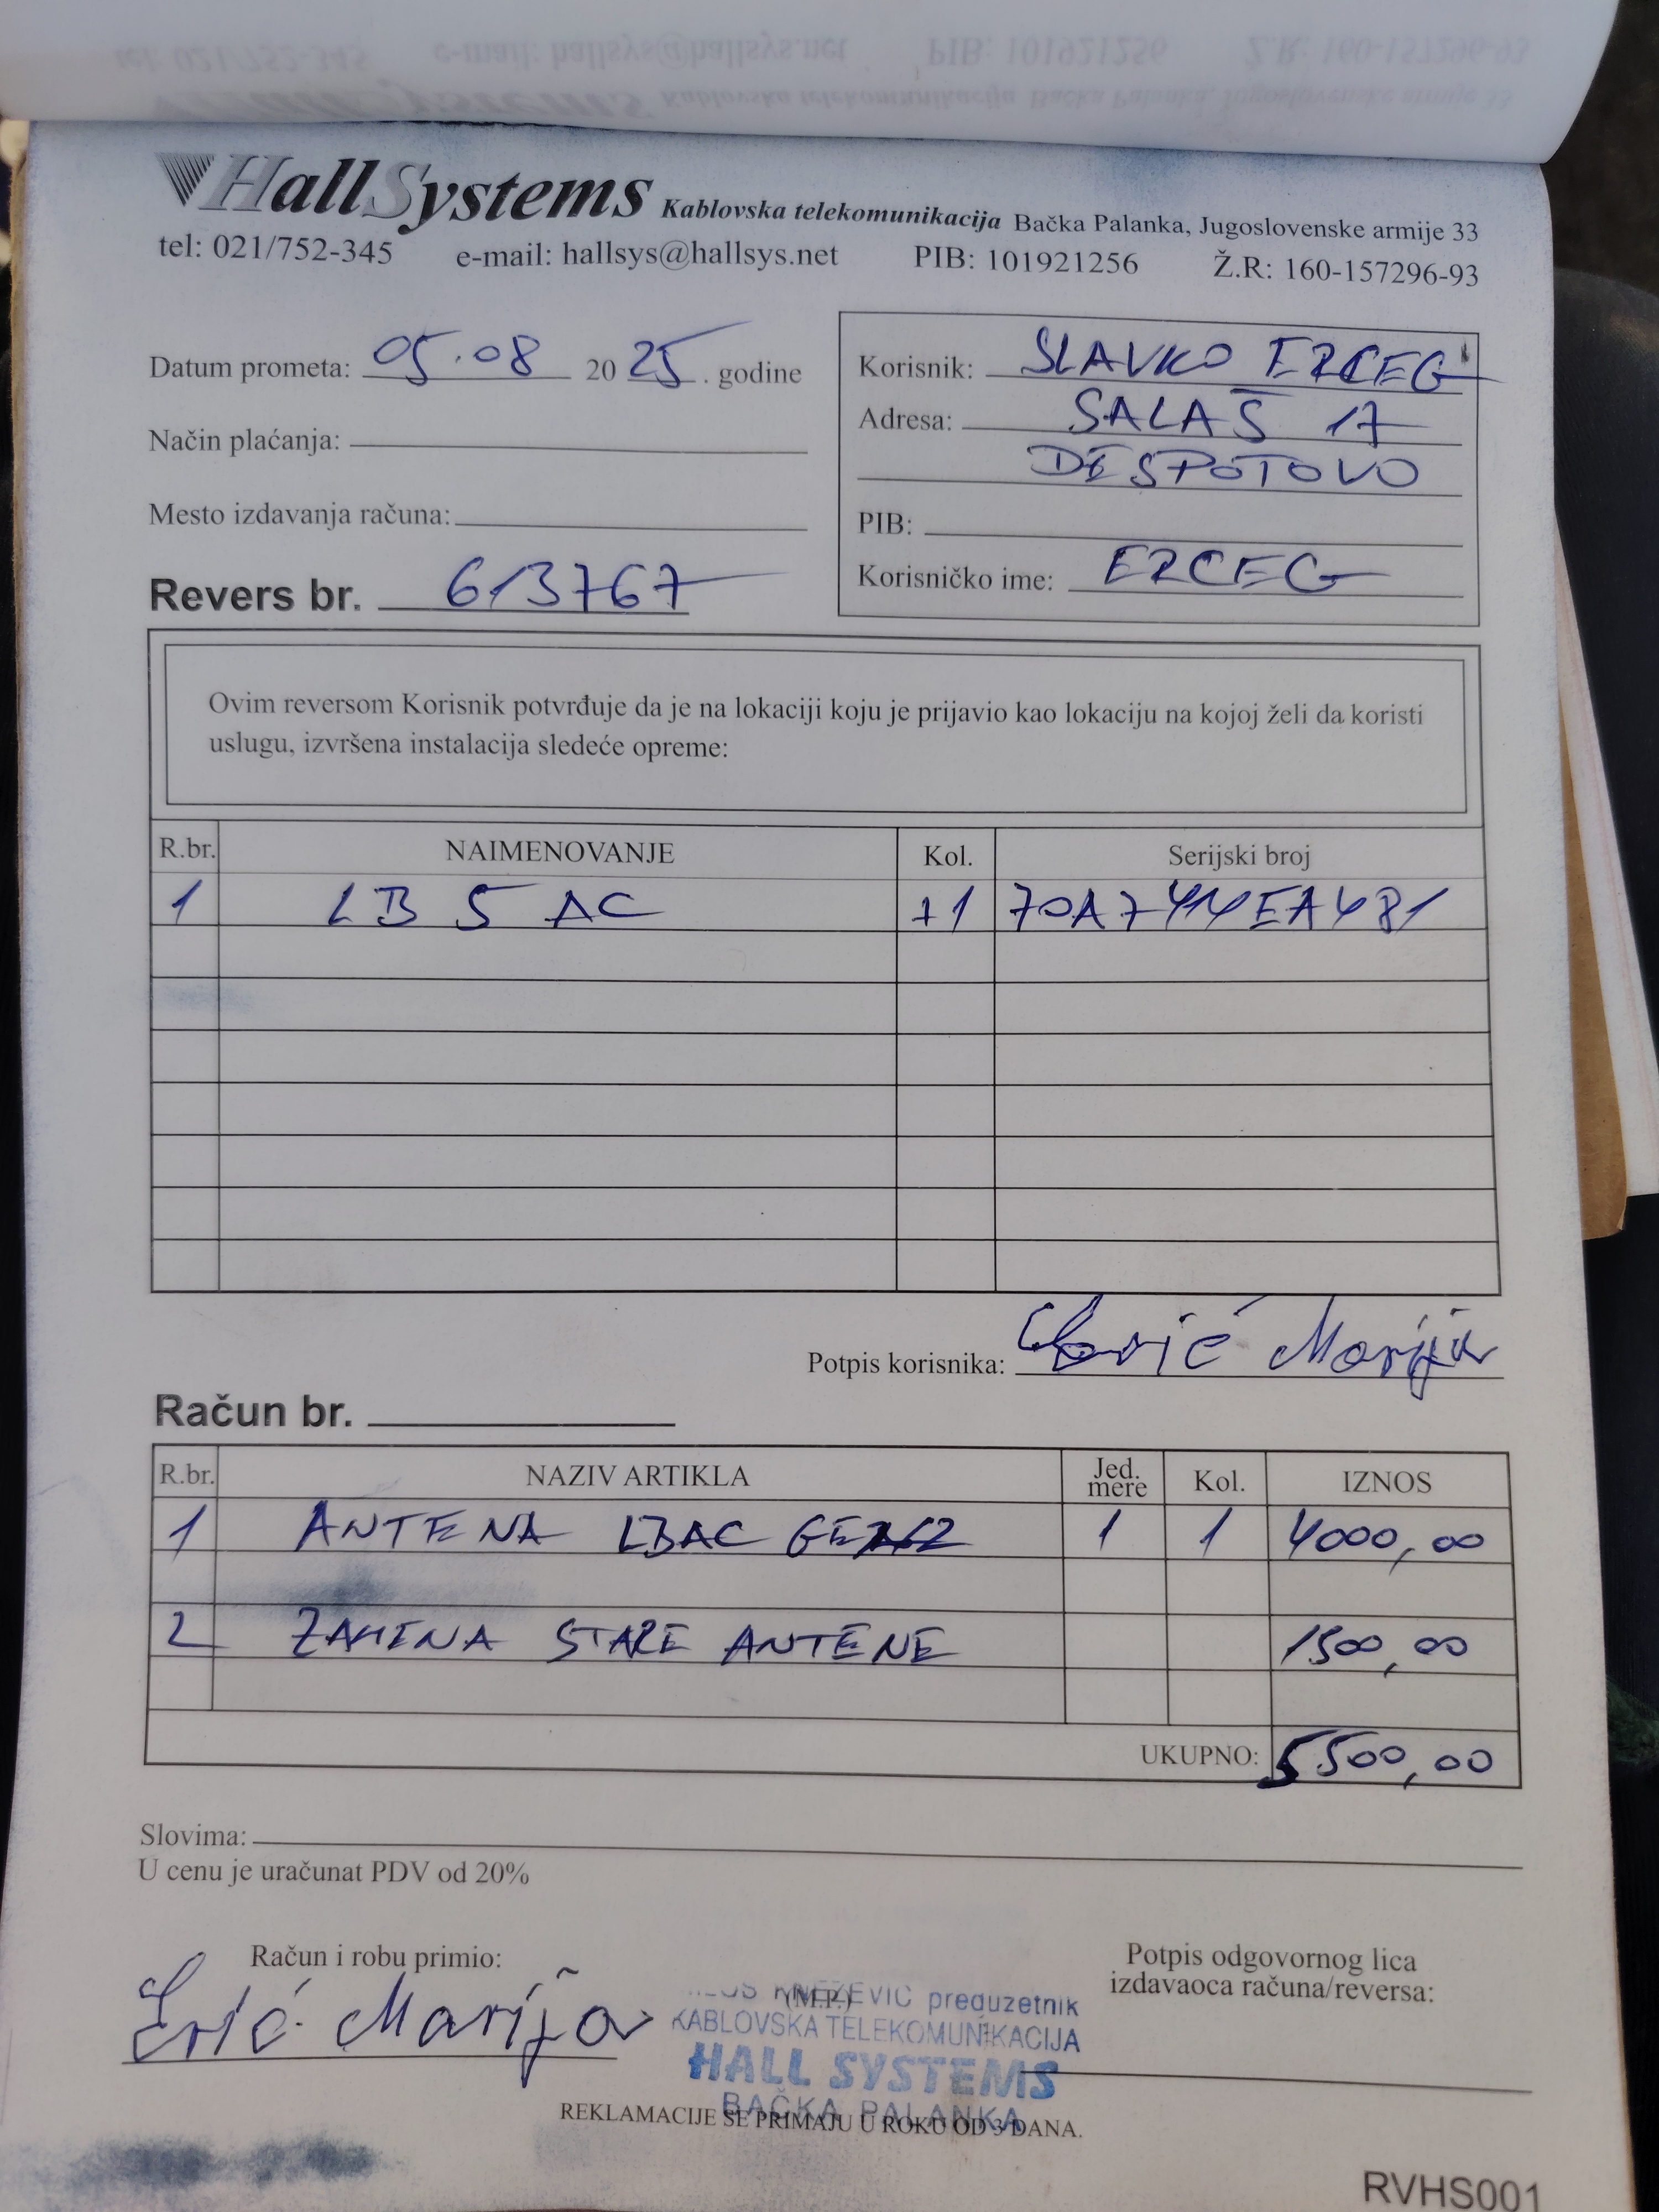 HallSystems Kablovska telekomunikacija Bačka Palanka, Jugoslovenske armije 33
tel: 021/752-345 e-mail: hallsys@hallsys.net PIB: 101921256 Ž.R: 160-157296-93
Datum prometa: 05.08 2025. godine
Način plaćanja:
Mesto izdavanja računa:
Revers br. 613767
Korisnik: SLAVKO ERCEG
Adresa: SALAŠ 17
DESPOTOVO
PIB:
Korisničko ime: ERCEG
Ovim reversom Korisnik potvrđuje da je na lokaciji koju je prijavio kao lokaciju na kojoj želi da koristi
uslugu, izvršena instalacija sledeće opreme:
R.br. NAIMENOVANJE Kol. Serijski broj
1 LB 5 AC +1 70A7414EA481
Potpis korisnika: Marija
Račun br.
R.br. NAZIV ARTIKLA Jed. mere Kol. IZNOS
1 ANTENA LBAC 1 1 4000,00
2 ZAMENA STARE ANTENE 1500,00
UKUPNO: 5500,00
Slovima:
U cenu je uračunat PDV od 20%
Račun i robu primio:
Erić Marija
(M.P.)
KNEŽEVIĆ preduzetnik
KABLOVSKA TELEKOMUNIKACIJA
HALL SYSTEMS
BAČKA PALANKA
Potpis odgovornog lica
izdavaoca računa/reversa:
REKLAMACIJE SE PRIMAJU U ROKU OD 3 DANA.
RVHS001